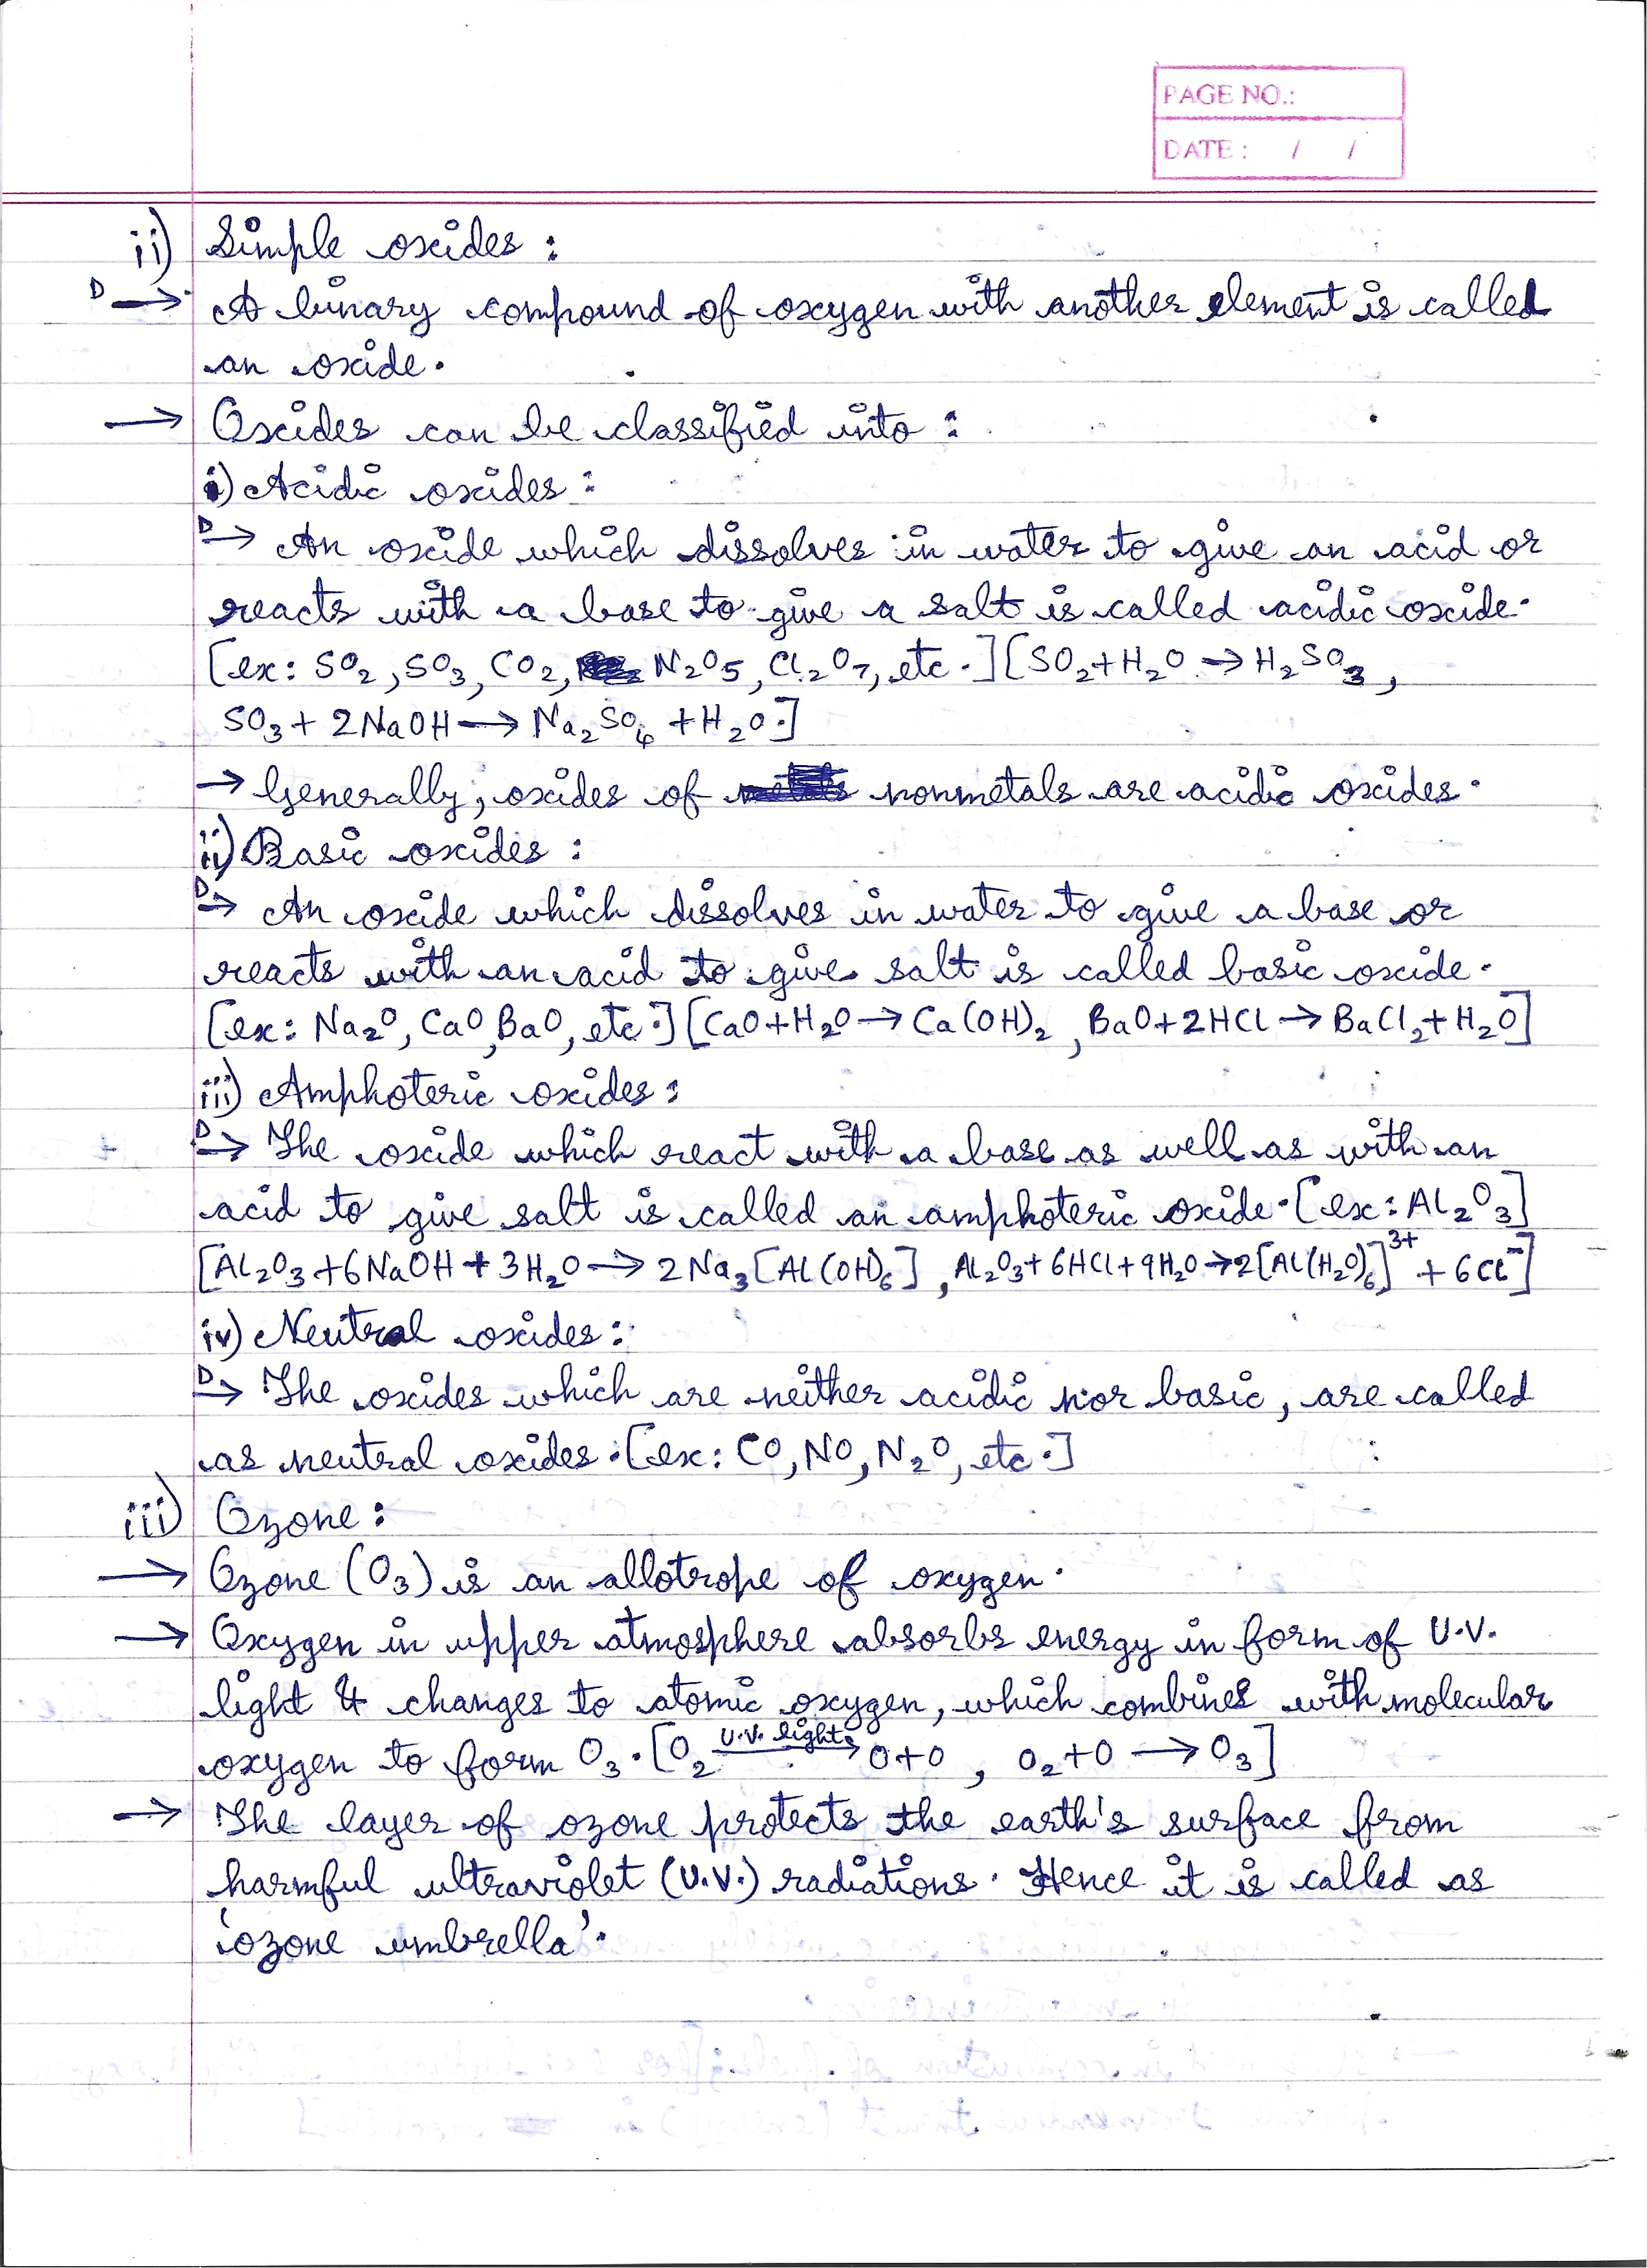 PAGE NO.:
DATE : / /
ii) Simple oxides :
D → A binary compound of oxygen with another element is called
an oxide.
→ Oxides can be classified into :
i) Acidic oxides :
D → An oxide which dissolves in water to give an acid or
reacts with a base to give a salt is called acidic oxide.
[ex: SO₂, SO₃, CO₂, N₂O₅, Cl₂O₇, etc.] [SO₂+H₂O → H₂SO₃,
SO₃ + 2NaOH → Na₂SO₄ + H₂O.]
→ Generally, oxides of nonmetals are acidic oxides.
ii) Basic oxides :
D → An oxide which dissolves in water to give a base or
reacts with an acid to give salt is called basic oxide.
[ex: Na₂O, CaO, BaO, etc.] [CaO+H₂O → Ca(OH)₂, BaO+2HCl → BaCl₂+H₂O]
iii) Amphoteric oxides :
D → The oxide which react with a base as well as with an
acid to give salt is called an amphoteric oxide. [ex: Al₂O₃]
[Al₂O₃+6NaOH+3H₂O → 2Na₃[Al(OH)₆], Al₂O₃+6HCl+9H₂O → 2[Al(H₂O)₆]³⁺ + 6Cl⁻]
iv) Neutral oxides :
D → The oxides which are neither acidic nor basic, are called
as neutral oxides. [ex: CO, NO, N₂O, etc.]
iii) Ozone :
→ Ozone (O₃) is an allotrope of oxygen.
→ Oxygen in upper atmosphere absorbs energy in form of U.V.
light & changes to atomic oxygen, which combines with molecular
oxygen to form O₃. [O₂ U.V. light → O+O, O₂+O → O₃]
→ The layer of ozone protects the earth's surface from
harmful ultraviolet (U.V.) radiations. Hence it is called as
'ozone umbrella'.